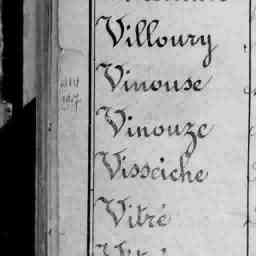 Villoury
Vinouse
Vinouze
Visseiche
Vitré